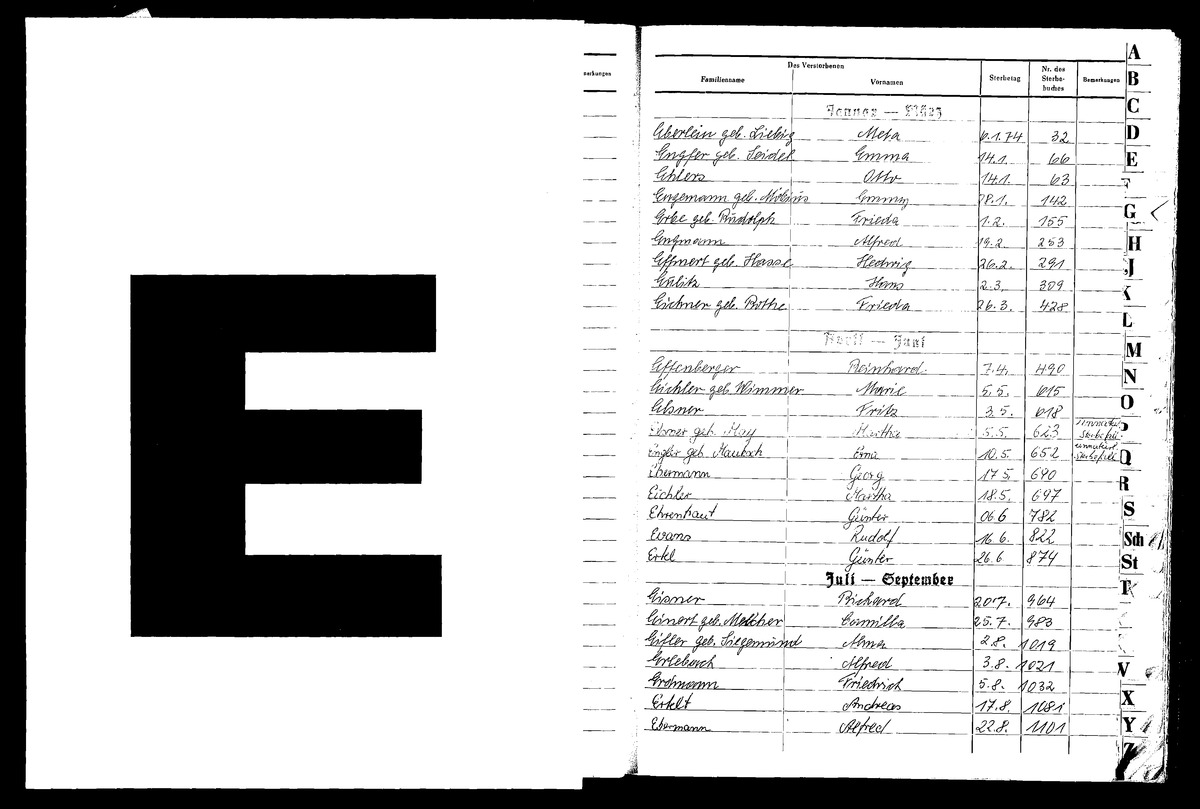 E
merkungen
Des Verstorbenen
Familienname Vornamen Sterbetag Nr. des Sterbe- buches Bemerkungen
Januar — März
Eberlein geb. Liebig Meta 6.1.74 32
Engfer geb. Seidel Emma 14.1. 66
Ehlers Otto 14.1. 63
Engemann geb. Möbius Emmy 18.1. 142
Erbe geb. Rudolph Frieda 1.2. 155
Engmann Alfred 19.2. 253
Effnert geb. Hasse Hedwig 26.2. 291
Hans 2.3. 309
Eichner geb. Bothe Frieda 26.3. 428
April — Juni
Effenberger Reinhard 7.4. 490
Eichler geb. Wimmer Marie 5.5. 615
Elsner Fritz 3.5. 618
Elsner geb. May Martha 5.5. 623 Sterbefall
Engler geb. Erna 10.5. 652 Sterbefall
Ebermann Georg 17.5. 690
Eichler Martha 18.5. 697
Ehrenhaut Günter 06.6 782
Evans Rudolf 16.6. 822
Ertel Günter 26.6 874
Juli — September
Eisner Richard 20.7. 964
Einert geb. Melcher Camilla 25.7. 983
Eifler geb. Siegemund Alma 2.8. 1019
Erlebach Alfred 3.8. 1021
Erdmann Friedrich 5.8. 1032
Erkelt Andreas 17.8. 1081
Ebermann Alfred 22.8. 1101
A
B
C
D
E
F
G
H
J
K
L
M
N
O
P
Q
R
S
Sch
St
T
V
X
Y
Z